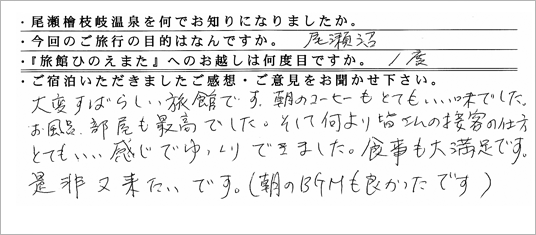 ・尾瀬檜枝岐温泉を何でお知りになりましたか。
・今回のご旅行の目的はなんですか。 尾瀬沼
・『旅館ひのえまた』へのお越しは何度目ですか。 1度
・ご宿泊いただきましたご感想・ご意見をお聞かせ下さい。
大変すばらしい旅館です。朝のコーヒーもとてもいい味でした。
お風呂、部屋も最高でした。そして何より皆さんの接客の仕方
とてもいい感じでゆっくりできました。食事も大満足です。
是非又来たいです。(朝のBGMも良かったです)